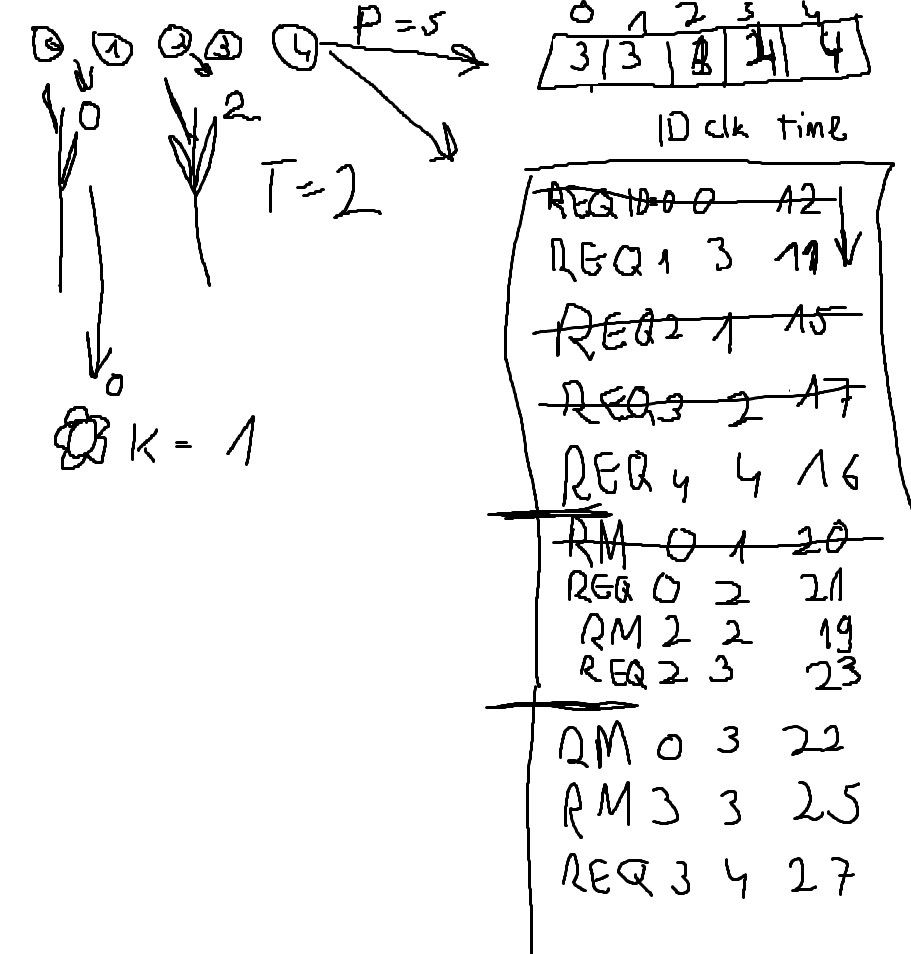 0 1 2 3 4 P=5
0 1 2 3 4
3 3 4 4
ID clk time
0 2
T=2
REQ ID=0 0 12
REQ 1 3 11
REQ 2 1 15
REQ 3 2 17
0
K = 1
REQ 4 4 16
RM 0 1 20
REQ 0 2 21
RM 2 2 19
REQ 2 3 23
RM 0 3 22
RM 3 3 25
REQ 3 4 27